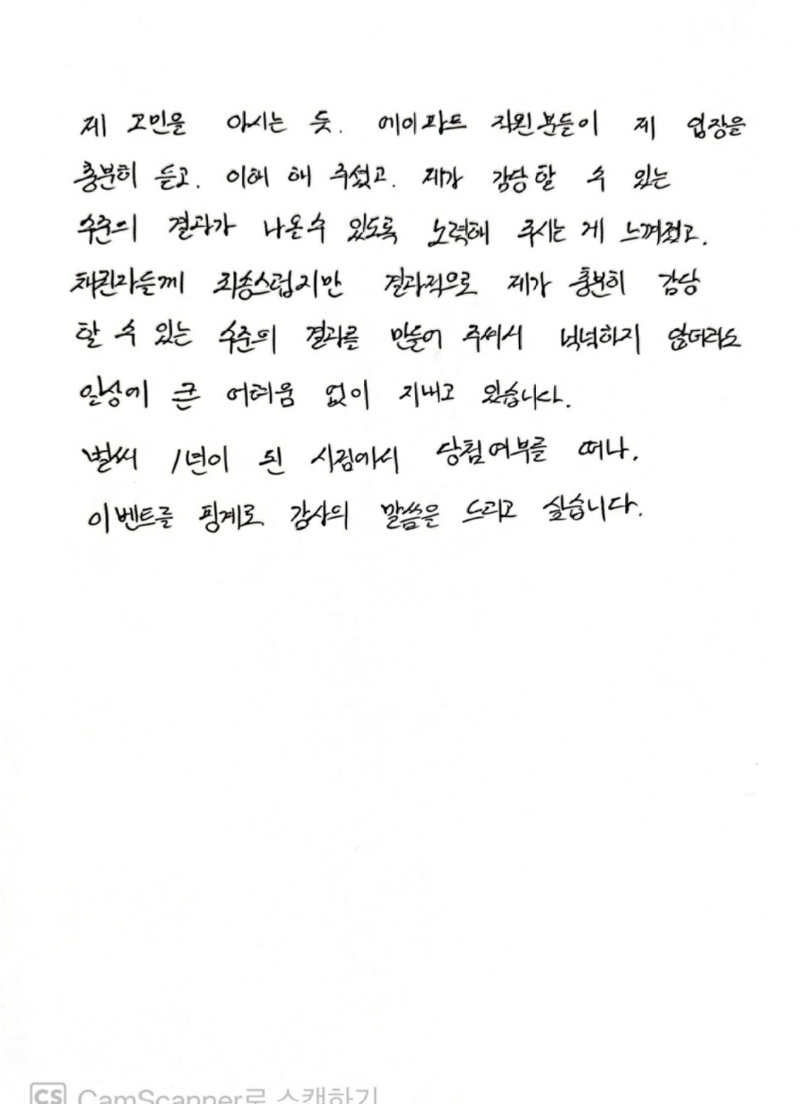 제 고민을 아시는 듯. 에이파트 직원분들이 제 입장을
충분히 듣고. 이해 해 주셨고. 제가 감당할 수 있는
수준의 결과가 나올수 있도록 노력해 주시는 게 느껴졌고.
채권자들께 죄송스럽지만 결과적으로 제가 충분히 감당
할 수 있는 수준의 결과를 만들어 주셔서 넉넉하지 않더라도
일상에 큰 어려움 없이 지내고 있습니다.
벌써 1년이 된 시점에서 당첨여부를 떠나.
이벤트를 핑계로 감사의 말씀을 드리고 싶습니다.
CS CamScanner로 스캔하기